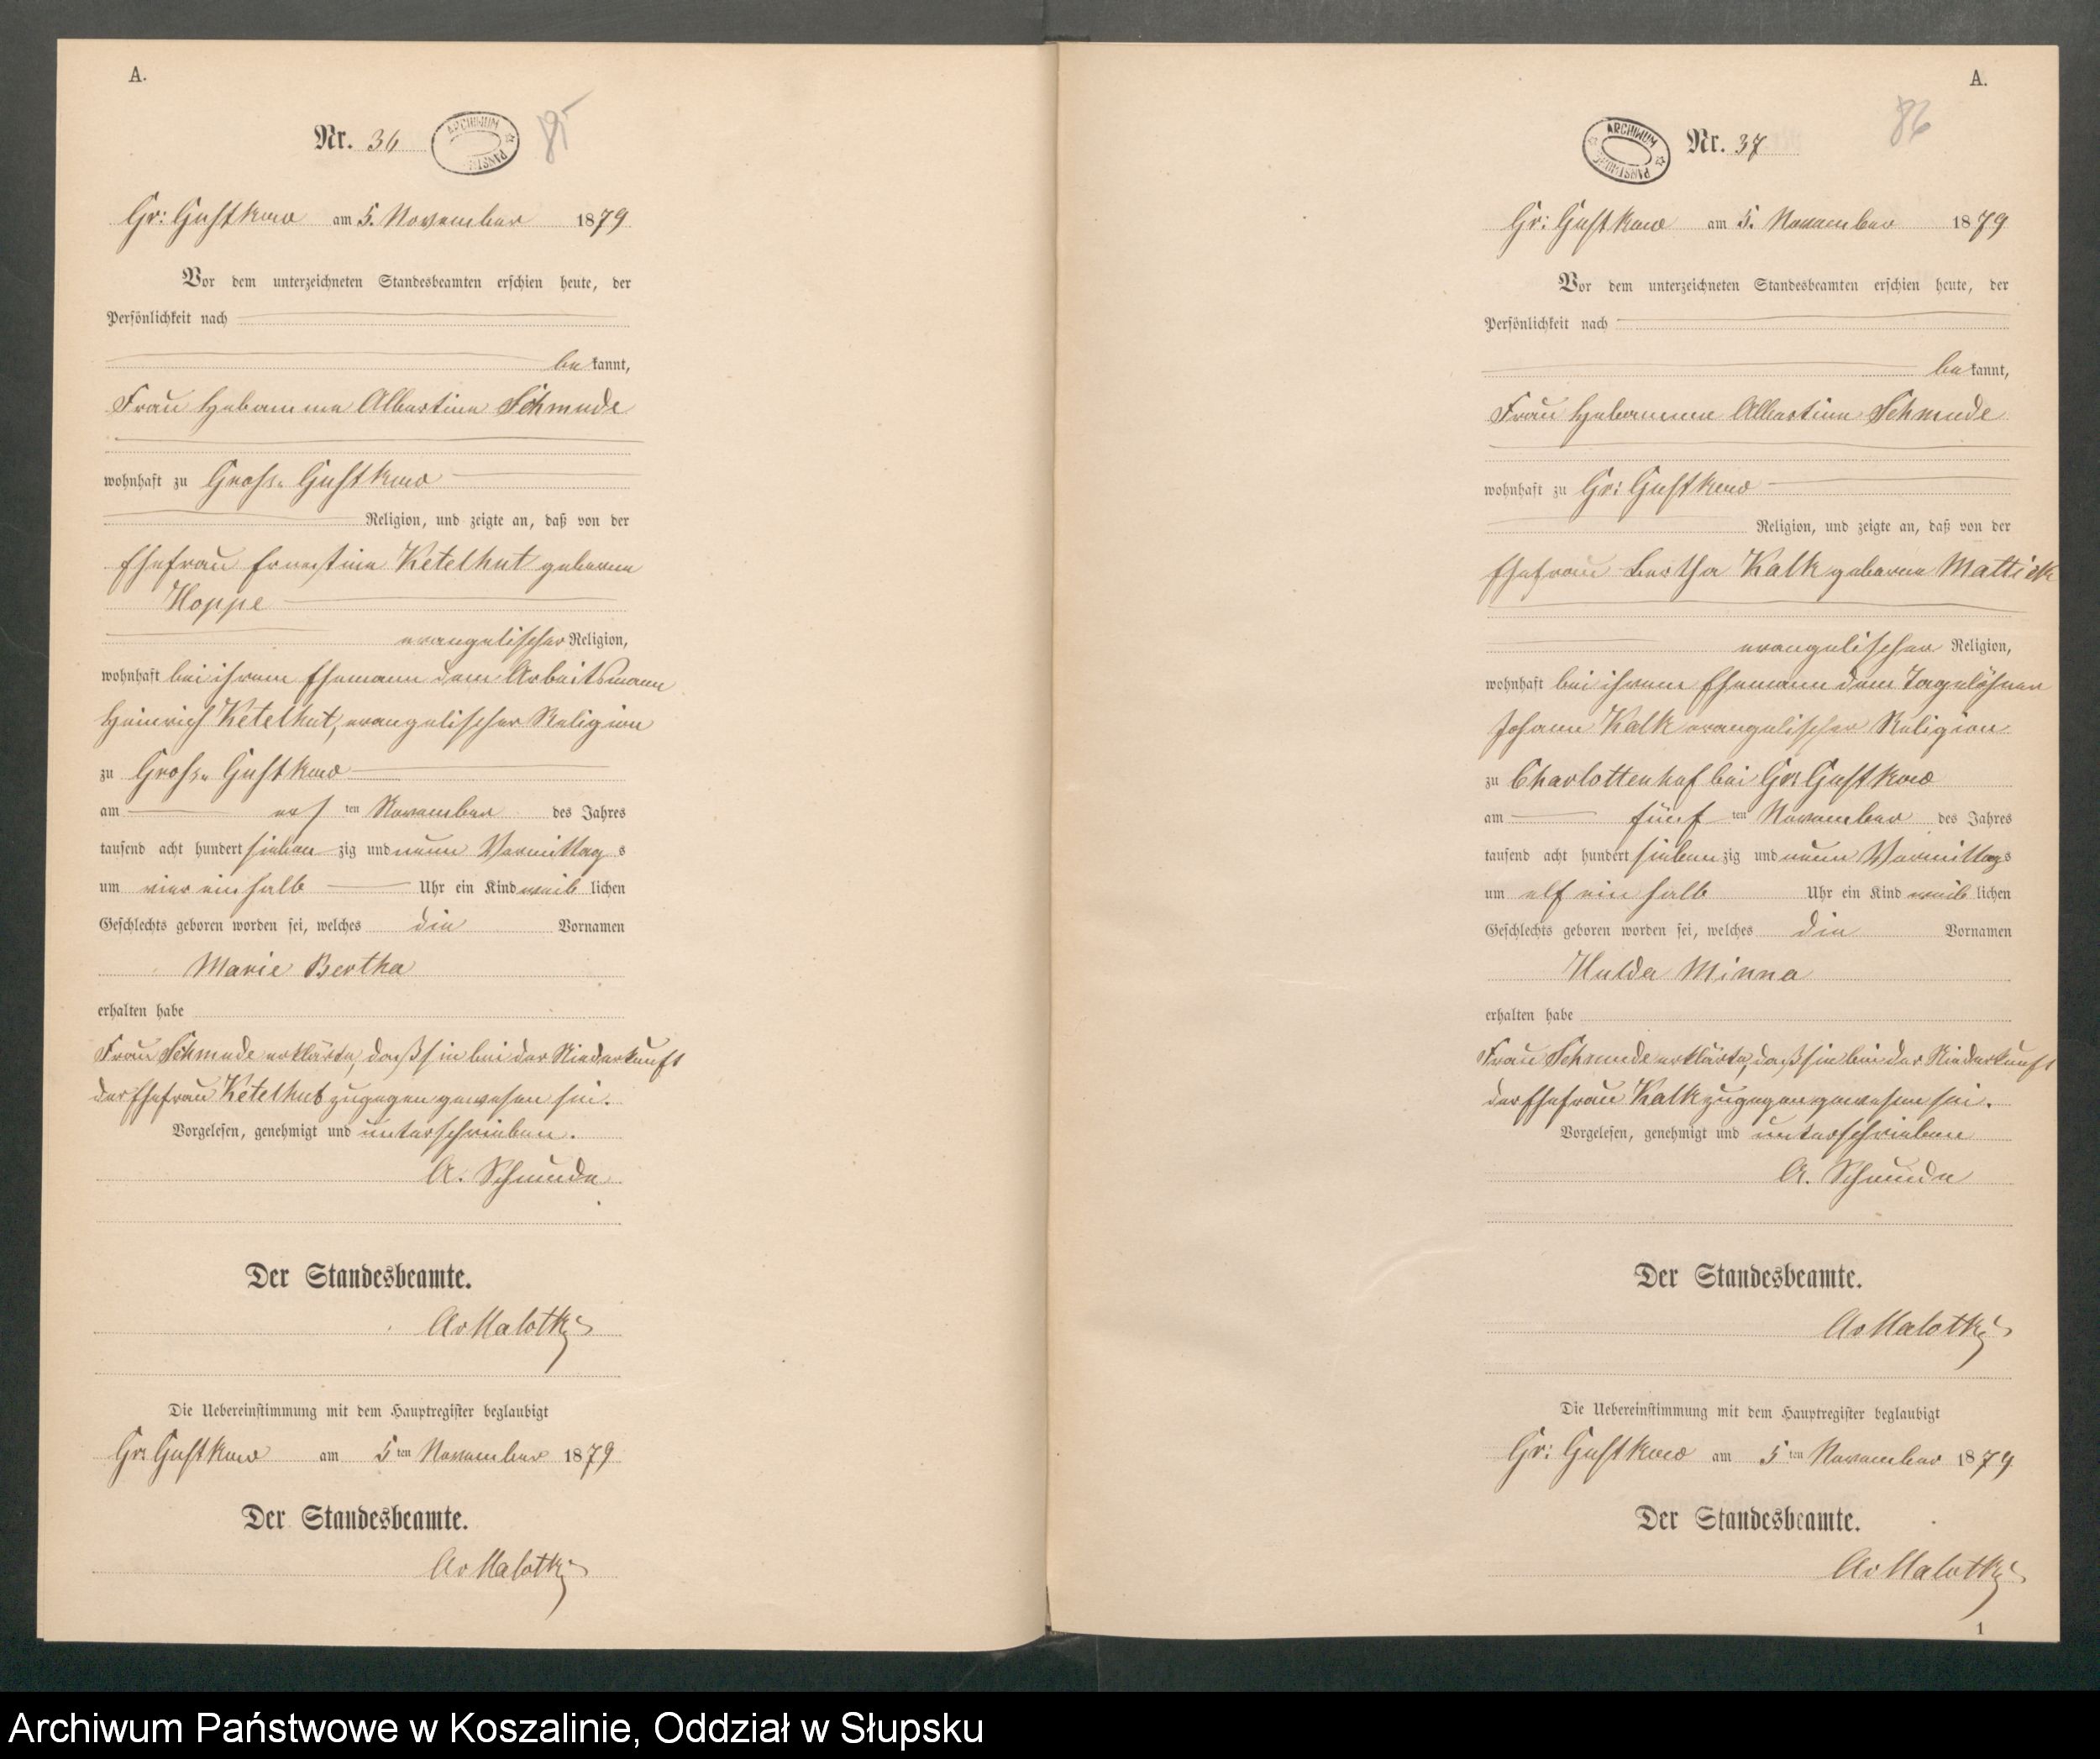 A.
Nr. 36
ARCHIWUM
85
Gr: Gustkow am 5. November 1879
Vor dem unterzeichneten Standesbeamten erschien heute, der
Persönlichkeit nach
be kannt,
Frau Hebamme Albertine Schmude
wohnhaft zu Gross Gustkow
Religion, und zeigte an, daß von der
Ehefrau Ernestine Ketelhut geborne
Hoppe
evangelischer Religion,
wohnhaft bei ihrem Ehemann dem Arbeitsmann
Heinrich Ketelhut, evangelischer Religion
zu Gross Gustkow
am ersten November des Jahres
tausend acht hundert sieben zig und neun Vormittag s
um vier ein halb Uhr ein Kind weib lichen
Geschlechts geboren worden sei, welches die Vornamen
Marie Bertha
erhalten habe
Frau Schmude erklärte, daß sie bei der Niederkunft
der Ehefrau Ketelhut zugegen gewesen sei.
Vorgelesen, genehmigt und unterschrieben.
A. Schmude
Der Standesbeamte.
Av Malotky
Die Uebereinstimmung mit dem Hauptregister beglaubigt
Gr: Gustkow am 5 ten November 1879
Der Standesbeamte.
Av Malotky
A.
ARCHIWUM
Nr. 37
86
Gr: Gustkow am 5. November 1879
Vor dem unterzeichneten Standesbeamten erschien heute, der
Persönlichkeit nach
be kannt,
Frau Hebamme Albertine Schmude
wohnhaft zu Gr: Gustkow
Religion, und zeigte an, daß von der
Ehefrau Bertha Kalk geborne Mattick
evangelischer Religion,
wohnhaft bei ihrem Ehemann dem Tagelöhner
Johann Kalk evangelischer Religion
zu Charlottenhof bei Gr: Gustkow
am fünf ten November des Jahres
tausend acht hundert sieben zig und neun Vormittags
um elf ein halb Uhr ein Kind weib lichen
Geschlechts geboren worden sei, welches die Vornamen
Hulda Minna
erhalten habe
Frau Schmude erklärte, daß sie bei der Niederkunft
der Ehefrau Kalk zugegen gewesen sei.
Vorgelesen, genehmigt und unterschrieben
A. Schmude
Der Standesbeamte.
Av Malotky
Die Uebereinstimmung mit dem Hauptregister beglaubigt
Gr: Gustkow am 5 ten November 1879
Der Standesbeamte.
Av Malotky
1
Archiwum Państwowe w Koszalinie, Oddział w Słupsku